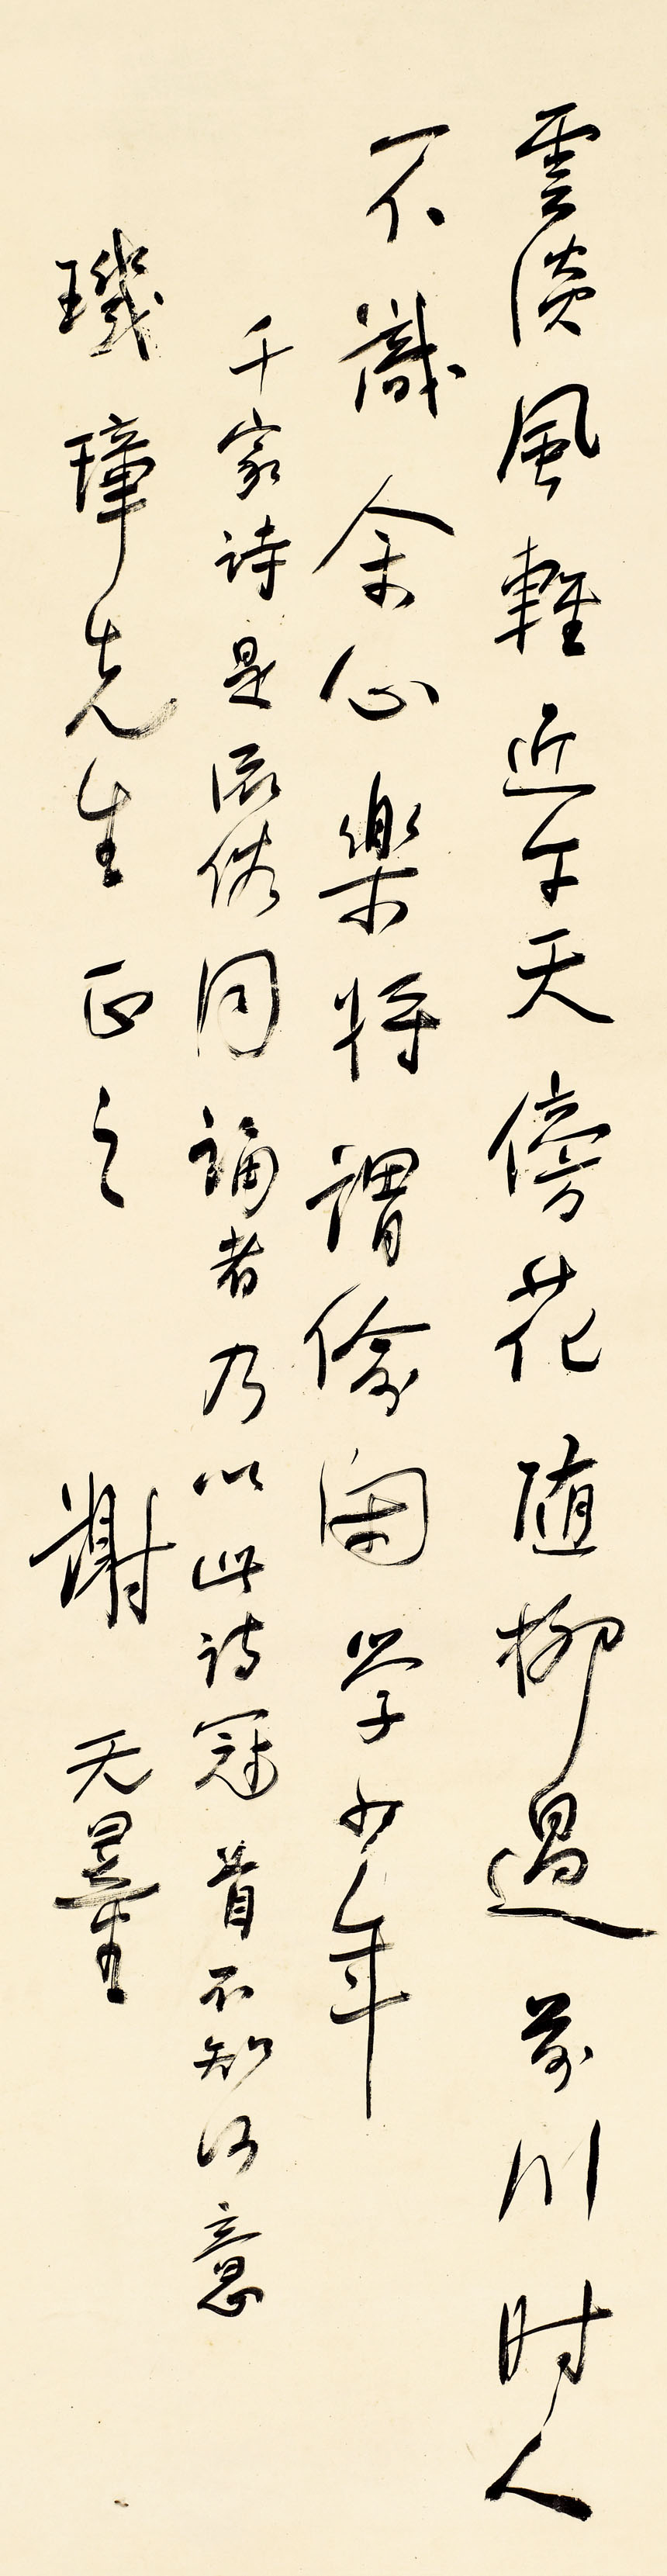 雲淡風輕近午天傍花随柳過前川时人
不識余心樂將謂偷閑学少年
千家詩是流俗同誦者乃以此诗冠首不知何意
璣璋先生正之 謝无量